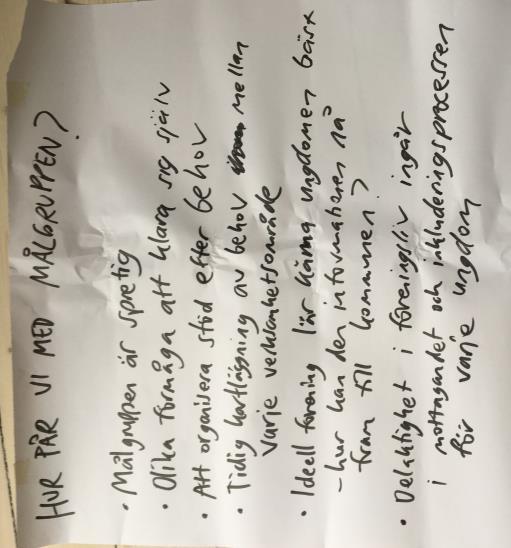 HUR PÅR VI MED MÅLGRUPPEN?
• Målgruppen är spretig
• Olika förmåga att klara sig själv
• Att organisera stöd efter behov
• Tidig kartläggning av behov mellan
varje verksamhetsområde
• Ideell förening lär känna ungdomen bäst
- hur kan den informationen nå
fram till kommunen?
• Delaktighet i föreningsliv ingår
i mottagandet och inkluderingsprocessen
för varje ungdom